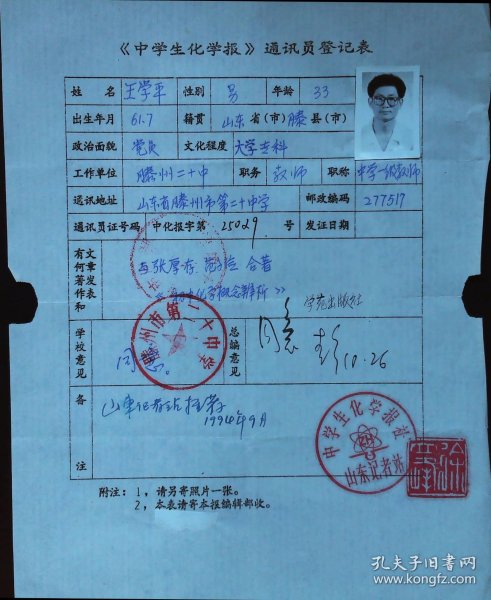 《中学生化学报》通讯员登记表
姓名 王学平 性别 男 年龄 33
出生年月 61.7 籍贯 山东省(市)滕县(市)
政治面貌 党员 文化程度 大学专科
工作单位 滕州二十中 职务 教师 职称 中学一级教师
通讯地址 山东省滕州市第二十中学 邮政编码 277517
通讯员证号码 中化报字第 25029 号 发证日期
有何著作和文章发表
与张厚存 合著
化学概念辨析》 学苑出版社
学校意见 同意。
总编意见 同意 10.26
滕州市第二十中学
备注
山东记者站推荐
1994年9月
中学生化学报社
山东记者站
附注:1,请另寄照片一张。
2,本表请寄本报编辑部收。
孔夫子旧书网
www.kongfz.com